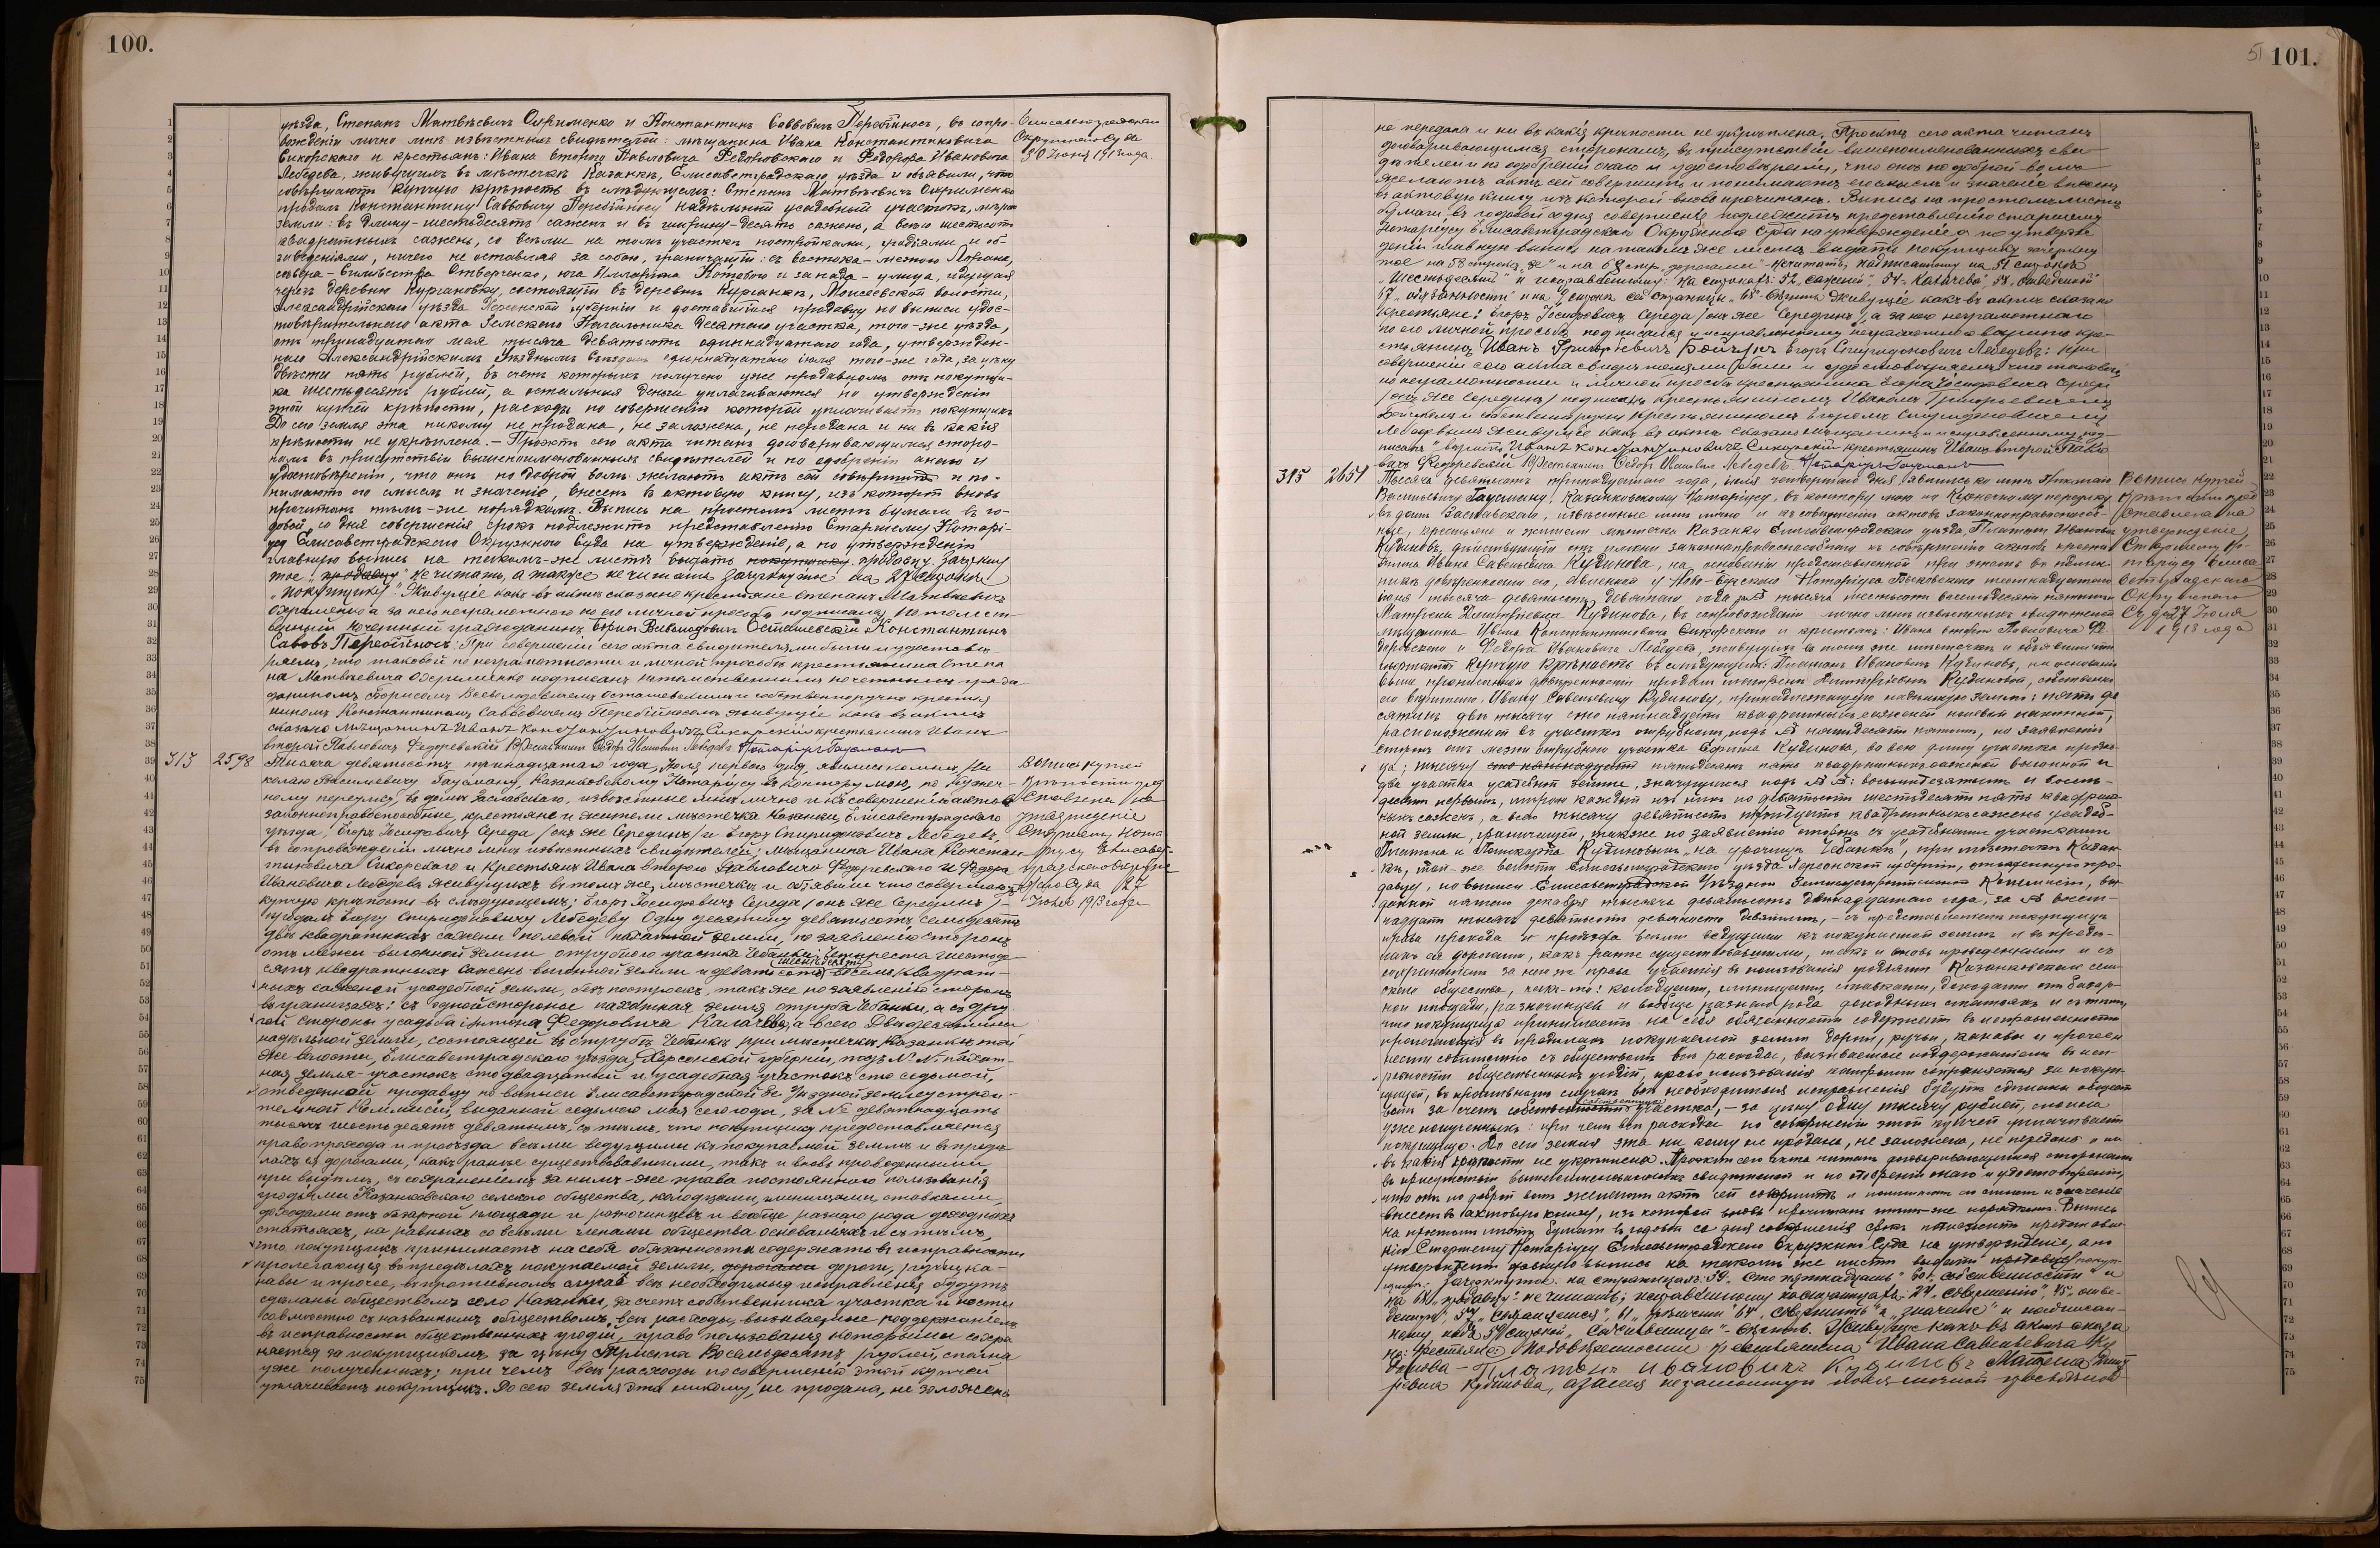 100.
уѣзда, Степанъ Матвѣевичъ Охрименко и Константинъ Саввовичъ Перебійносъ, въ сопро-
вожденіи лично мнѣ извѣстныхъ свидѣтелей: мѣщанина Ивана Константиновича
Сикорскаго и крестьянъ: Ивана второго Павловича Федоровскаго и Федора Ивановича
Лебедева, живущихъ въ мѣстечкѣ Казанкѣ, Елисаветградскаго уѣзда и объявили, что
совершаютъ купчую крѣпость въ слѣдующемъ: Степанъ Матвѣевичъ Охрименко
продалъ Константину Саввовичу Перебійносу надѣльный усадебный участокъ, мѣрою
земли: въ длину - шестьдесятъ сажень и въ ширину - десять сажень, а всего шестьсотъ
квадратныхъ сажень, со всѣми на томъ участкѣ постройками, угодьями и об-
заведеніями, ничего не оставляя за собою, граничащій: съ востока -
сѣвера - юга Илларіона и запада - улица, идущая
черезъ деревню Кургановку, состоящій въ деревнѣ Курганкѣ, Моисеевской волости,
Александрійскаго уѣзда Херсонской губерніи и доставшійся продавцу по выписи удос-
товѣрительнаго акта Земскаго Начальника десятаго участка, того-же уѣзда,
отъ тринадцатаго мая тысяча девятьсотъ одиннадцатаго года, утвержден-
наго Александрійскимъ Уѣзднымъ Съѣздомъ одиннадцатаго іюля того-же года, за цѣну
двѣсти пять рублей, въ счетъ которыхъ получено уже продавцомъ отъ покупщи-
ка шестьдесятъ рублей, а остальныя деньги уплачиваются по утвержденіи
этой купчей крѣпости, расходы по совершенію которой уплачиваетъ покупщикъ
До сего земля эта никому не продана, не заложена, не передана и ни въ какія
крѣпости не укрѣплена. - Проэктъ сего акта читанъ договаривающимся сторо-
намъ въ присутствіи вышепоименованныхъ свидѣтелей и по одобреніи онаго и
удостовѣреніи, что они по доброй волѣ желаютъ актъ сей совершить и по-
нимаютъ его смыслъ и значеніе, внесенъ въ актовую книгу, изъ которой вновь
прочитанъ тѣмъ-же порядкомъ. Выпись на простомъ листѣ бумаги въ го-
довой со дня совершенія срокъ подлежитъ представленію Старшему Нотарі-
усу Елисаветградскаго Окружнаго Суда на утвержденіе, а по утвержденіи
главную выпись на такомъ-же листѣ выдать покупщику продавцу. Зачеркну-
тое „продавцу" не читать, а также не читать зачеркнутое на 27 строкѣ
„покупщику". Живущіе какъ въ актѣ сказано крестьяне Степанъ Матвѣевичъ
Охрименко а за него неграмотнаго по его личной просьбѣ подписался потомст-
венный почетный гражданинъ Борисъ Всеволодовичъ Осташевскій Константинъ
Савовъ Перебійносъ: При совершеніи сего акта свидѣтелями были и удостовѣ-
ряемъ, что таковой по неграмотности и личной просьбѣ крестьянина Степа
на Матвѣевича Охрименко подписанъ потомственнымъ почетнымъ граж-
даниномъ Борисомъ Всеволодовичемъ Осташевскимъ и собственноручно кресть
яниномъ Константиномъ Саввовичемъ Перебійносомъ живущіе какъ въ актѣ
сказано мѣщанинъ Иванъ Константиновичъ Сикорскій крестьянинъ Иванъ
второй Павловичъ Федоревскій Крестьянинъ Федоръ Ивановъ Лебедевъ Нотаріусъ Гаусманъ
Елисаветградскаго
Окружнаго Суда
30 Іюня 1913 года.
313 2598 Тысяча девятьсотъ тринадцатаго года, Іюля перваго дня, явились ко мнѣ, Ни
колаю Васильевичу Гаусману, Казанковскому Нотаріусу въ контору мою, по Кузнеч-
ному переулку, въ домѣ Заславскаго, извѣстные мнѣ лично и къ совершенію актовъ
законноправоспособные, крестьяне и жители мѣстечка Казанки, Елисаветградскаго
уѣзда, Егоръ Іосифовичъ Середа /онъ же Середин/ и Егоръ Спиридоновичъ Лебедевъ
въ сопровожденіи лично мнѣ извѣстныхъ свидѣтелей: мѣщанина Ивана Констан
тиновича Сикорскаго и крестьянъ Ивана второго Павловича Федоревскаго и Федора
Ивановича Лебедева живущихъ въ томъ же, мѣстечкѣ и объявили что совершаютъ
купчую крѣпость въ слѣдующемъ: Егоръ Іосифовичъ Середа /онъ же Середин/ -
продалъ Егору Спиридоновичу Лебедеву Одну десятину девятьсотъ семьдесятъ
двѣ квадратныхъ сажени полевой пахатной земли, по заявленію сторонъ
отъ межи выгонной земли отрубного участка Чебанки; четыреста шестьде-
сятъ квадратныхъ сажень выгонной земли и девять сотъ шестьдесятъ восемь квадрат-
ныхъ саженей усадебной земли, безъ построекъ, также по заявленію сторонъ
въ границахъ: съ одной стороны пахатная земля отруба Чебанки, а съ дру
гой стороны усадьба Антона Федоровича Калачева, а всего Двѣ десятины
надѣльной земли, состоящей въ отрубѣ Чебанкѣ при мѣстечкѣ Казанкѣ, той
же волости, Елисаветградскаго уѣзда, Херсонской губерніи, подъ №№ пахат-
ная земля - участокъ сто двадцатый и усадебная участокъ сто седьмой,
отведенной продавцу по выписи Елисаветградской Уѣздной землеустрои-
тельной Коммисіи, выданной седьмого мая сего года, за № девятнадцать
тысячъ шестьдесятъ девятымъ, съ тѣмъ, что покупщику предоставляется
право прохода и проѣзда всѣми ведущими къ покупаемой землѣ и въ предѣ-
лахъ ея дорогами, какъ ранѣе существовавшими, такъ и вновь проведенными
при выдѣлѣ, съ сохраненіемъ за нимъ-же права постояннаго пользованія
угодьями Казанковскаго сельскаго общества, колодцами, глинищами, ставками,
доходами отъ базарной площади и разночинцевъ и вообще разнаго рода доходныхъ
статьяхъ, на равныхъ со всѣми членами общества основаніяхъ и съ тѣмъ,
что покупщикъ принимаетъ на себя обязанности содержать въ исправности
пролегающія въ предѣлахъ покупаемой земли, дорогами дороги, ручьи, ка-
навы и прочее, въ противномъ случаѣ всѣ необходимыя исправленія будутъ
сдѣланы обществомъ село Казанки, за счетъ собственника участка и нести
совмѣстно съ названнымъ обществомъ всѣ расходы, вызываемые поддержаніемъ
въ исправности общественныхъ угодій, право пользованія которыми сохра
няется за покупщикомъ за цѣну Триста Восемьдесятъ рублей, сполна
уже полученныхъ; при чемъ всѣ расходы по совершенію этой купчей
уплачиваетъ покупщикъ. До сего земля эта никому, не продана, не заложена
Выпись купчей
крѣпости пред
ставлена на
утвержденіе
Старшему Нота
ріусу Елисавет-
градскаго Окруж-
наго Суда 27
Іюля 1913 года
51 101.
не передана и ни въ какія крѣпости не укрѣплена. Проэктъ сего акта читанъ
договаривающимся сторонамъ, въ присутствіи вышепоименованныхъ сви
дѣтелей и по одобреніи онаго и удостовѣреніи, что они по доброй волѣ
желаютъ актъ сей совершить и понимаютъ его смыслъ и значеніе внесенъ
въ актовую книгу изъ которой вновь прочитанъ. Выпись на простомъ листѣ
бумаги, въ годовой со дня совершенія подлежитъ представленію старшему
нотаріусу Елисаветградскаго Окружнаго Суда на утвержденіе а по утверж
деніи главную выпись на такомъ же листѣ выдать покупщику зачеркну
тое на 58 строкѣ „Зе" и на 68 стр. „дорогами" - не читать, надписанному на 51 строкѣ
„шестьдесятъ" и исправленному: на строкахъ: 52 „саженей", 54 „Калачева", 58 „отведенной"
67 „обязанности" и на строкѣ сей страницы - вѣрить Живущіе какъ въ актѣ сказано
крестьяне: Егоръ Іосифовичъ Середа /онъ же Середин/ а за него неграмотнаго
по его личной просьбѣ подписался и исправленному вѣрить кре-
стьянинъ Иванъ Григорьевичъ Бойчукъ Егоръ Спиридоновичъ Лебедевъ: при
совершеніи сего акта свидѣтелями были и удостовѣряемъ, что таковой
по неграмотности и личной просьбѣ крестьянина Егора Іосифовича Середы
/онъ же Середин/ подписанъ крестьяниномъ Иваномъ Григорьевичемъ
Бойчукомъ и собственноручно крестьяниномъ Егоромъ Спиридоновичемъ
Лебедевымъ живущіе какъ въ актѣ сказано мѣщанинъ и исправленному „под-
писанъ" вѣрить Иванъ Константиновичъ Сикорскій крестьянинъ Иванъ второй Павло
вичъ Федоревскій Крестьянинъ Федоръ Ивановъ Лебедевъ. Нотаріусъ Гаусманъ
315 2654 Тысяча девятьсотъ тринадцатаго года, іюля четвертаго дня, явились ко мнѣ Николаю
Васильевичу Гаусману, Казанковскому Нотаріусу, въ контору мою по Кузнечному переулку
въ домѣ Заславскаго, извѣстные мнѣ лично и къ совершенію актовъ законноправоспособ-
ные, крестьяне и жители мѣстечка Казанки Елисаветградскаго уѣзда, Платонъ Ивановичъ
Кудиновъ, дѣйствующій отъ имени законноправоспособнаго къ совершенію актовъ кресть
янина Ивана Савельевича Кудинова, на основаніи представленной при этомъ въ подлин
никѣ довѣренности его, явленной у Ново-Бугскаго Нотаріуса
іюня тысяча девятьсотъ девятаго года за № тысяча шестьсотъ восемьдесятъ пятымъ и
Матрена Дмитріевна Кудинова, въ сопровожденіи лично мнѣ извѣстныхъ свидѣтелей
мѣщанина Ивана Константиновича Сикорскаго и крестьянъ: Ивана второго Павловича Фе-
доревскаго и Федора Ивановича Лебедева, живущихъ въ томъ же мѣстечкѣ и объявили что
совершаютъ купчую крѣпость въ слѣдующемъ: Платонъ Ивановичъ Кудиновъ, на основаніи
выше прописанной довѣренности продалъ Матренѣ Дмитріевнѣ Кудиновой, собственную
его вѣрителю, Ивану Савельевичу Кудинову, принадлежащую надѣльную землю: пять де
сятинъ двѣ тысячи сто пятнадцать квадратныхъ саженей полевой пахатной,
расположенной въ участкѣ отрубномъ, подъ № пятьдесятъ пятымъ, по заявленію
сторонъ отъ межи отрубного участка Ефима Кудинова, во всю длину участка продав-
ца; тысячу сто пятнадцать пятьдесятъ пять квадратныхъ саженей выгонной и
два участка усадебной земли, значущихся подъ №№: восьмидесятымъ и восемь-
десятъ первымъ, мѣрою каждый изъ нихъ по девятьсотъ шестьдесятъ пять квадрат
ныхъ сажень, а всего тысячу девятьсотъ тридцать квадратныхъ сажень усадеб-
ной земли, граничащей, также по заявленію сторонъ съ усадебными участками
Платона и Кудиновыхъ, „на урочищѣ Чебанкѣ", при мѣстечкѣ Казан-
кѣ, той-же волости Елисаветградскаго уѣзда Херсонской губерніи, отведенную про-
давцу, по выписи Елисаветградской Уѣздной Землеустроительной Комиссіи, вы-
данной пятаго декабря тысяча девятьсотъ двѣнадцатаго года, за № восем-
надцать тысячъ девятьсотъ девяносто девятымъ, - съ предоставленіемъ покупщицѣ
права прохода и проѣзда всѣми ведущими къ покупаемой землѣ и въ предѣ-
лахъ ея дорогами, какъ ранѣе существовавшими, такъ и вновь проведенными и съ
сохраненіемъ за нею же права участія въ пользованіи угодьями Казанковскаго сель-
скаго общества, какъ-то: колодцами, глинищами, ставками, доходами отъ базар-
ной площади, разночинцевъ и вообще разнаго рода доходными статьями и съ тѣмъ,
что покупщица принимаетъ на себя обязанности содержать въ исправности
пролегающія въ предѣлахъ покупаемой земли дороги, ручьи, канавы и прочее и
нести совмѣстно съ обществомъ всѣ расходы, вызываемые поддержаніемъ въ исп-
равности общественныхъ угодій, право пользованія которыми сохраняется за покуп-
щицей, въ противномъ случаѣ всѣ необходимыя исправленія будутъ сдѣланы общест-
вомъ за счетъ собственницы участка, - за цѣну одну тысячу рублей, сполна
уже полученныхъ: при чемъ всѣ расходы по совершенію этой купчей уплачиваетъ
покупщица. До сего земля эта ни кому не продана, не заложена, не передана и ни
въ какія крѣпости не укрѣплена. Проэктъ сего акта читанъ договаривающимся сторонамъ
въ присутствіи вышепоименованныхъ свидѣтелей и по одобреніи онаго и удостовѣреніи,
что они по доброй волѣ желаютъ актъ сей совершить и понимаютъ его смыслъ и значеніе
внесенъ въ актовую книгу, изъ которой вновь прочитанъ тѣмъ-же порядкомъ. Выпись
на простомъ листѣ бумаги въ годовой со дня совершенія срокъ подлежитъ представле-
нію Старшему Нотаріусу Елисаветградскаго Окружнаго Суда на утвержденіе, а по
утвержденіи главную выпись на такомъ же листѣ выдать продавцу покуп-
щицѣ. Зачеркнутое: на строкахъ: 39 „сто пятнадцать" 60 „собственности" и
на 68 „продавцу" не читать; исправленному на строкахъ: 24 „совершенію", 45 „отве-
денную", 57 „сохраняется", 61 „уплачиваетъ" 64 „совершить" и „значеніе" и надписан-
ному надъ 59 строкой „собственницы" - вѣрить. Живущіе какъ въ актѣ сказа
но: крестьяне: По довѣренности крестьянина Ивана Савельевича Ку
динова - Платонъ Ивановичъ Кудиновъ Матрена Дмит
ріевна Кудинова, а за нея неграмотную по ея личной просьбѣ под
Выпись купчей
крѣпости пред
ставлена на
утвержденіе
Старшему Но-
таріусу Елиса
ветградскаго
Окружнаго
Суда 27 Іюля
1913 года